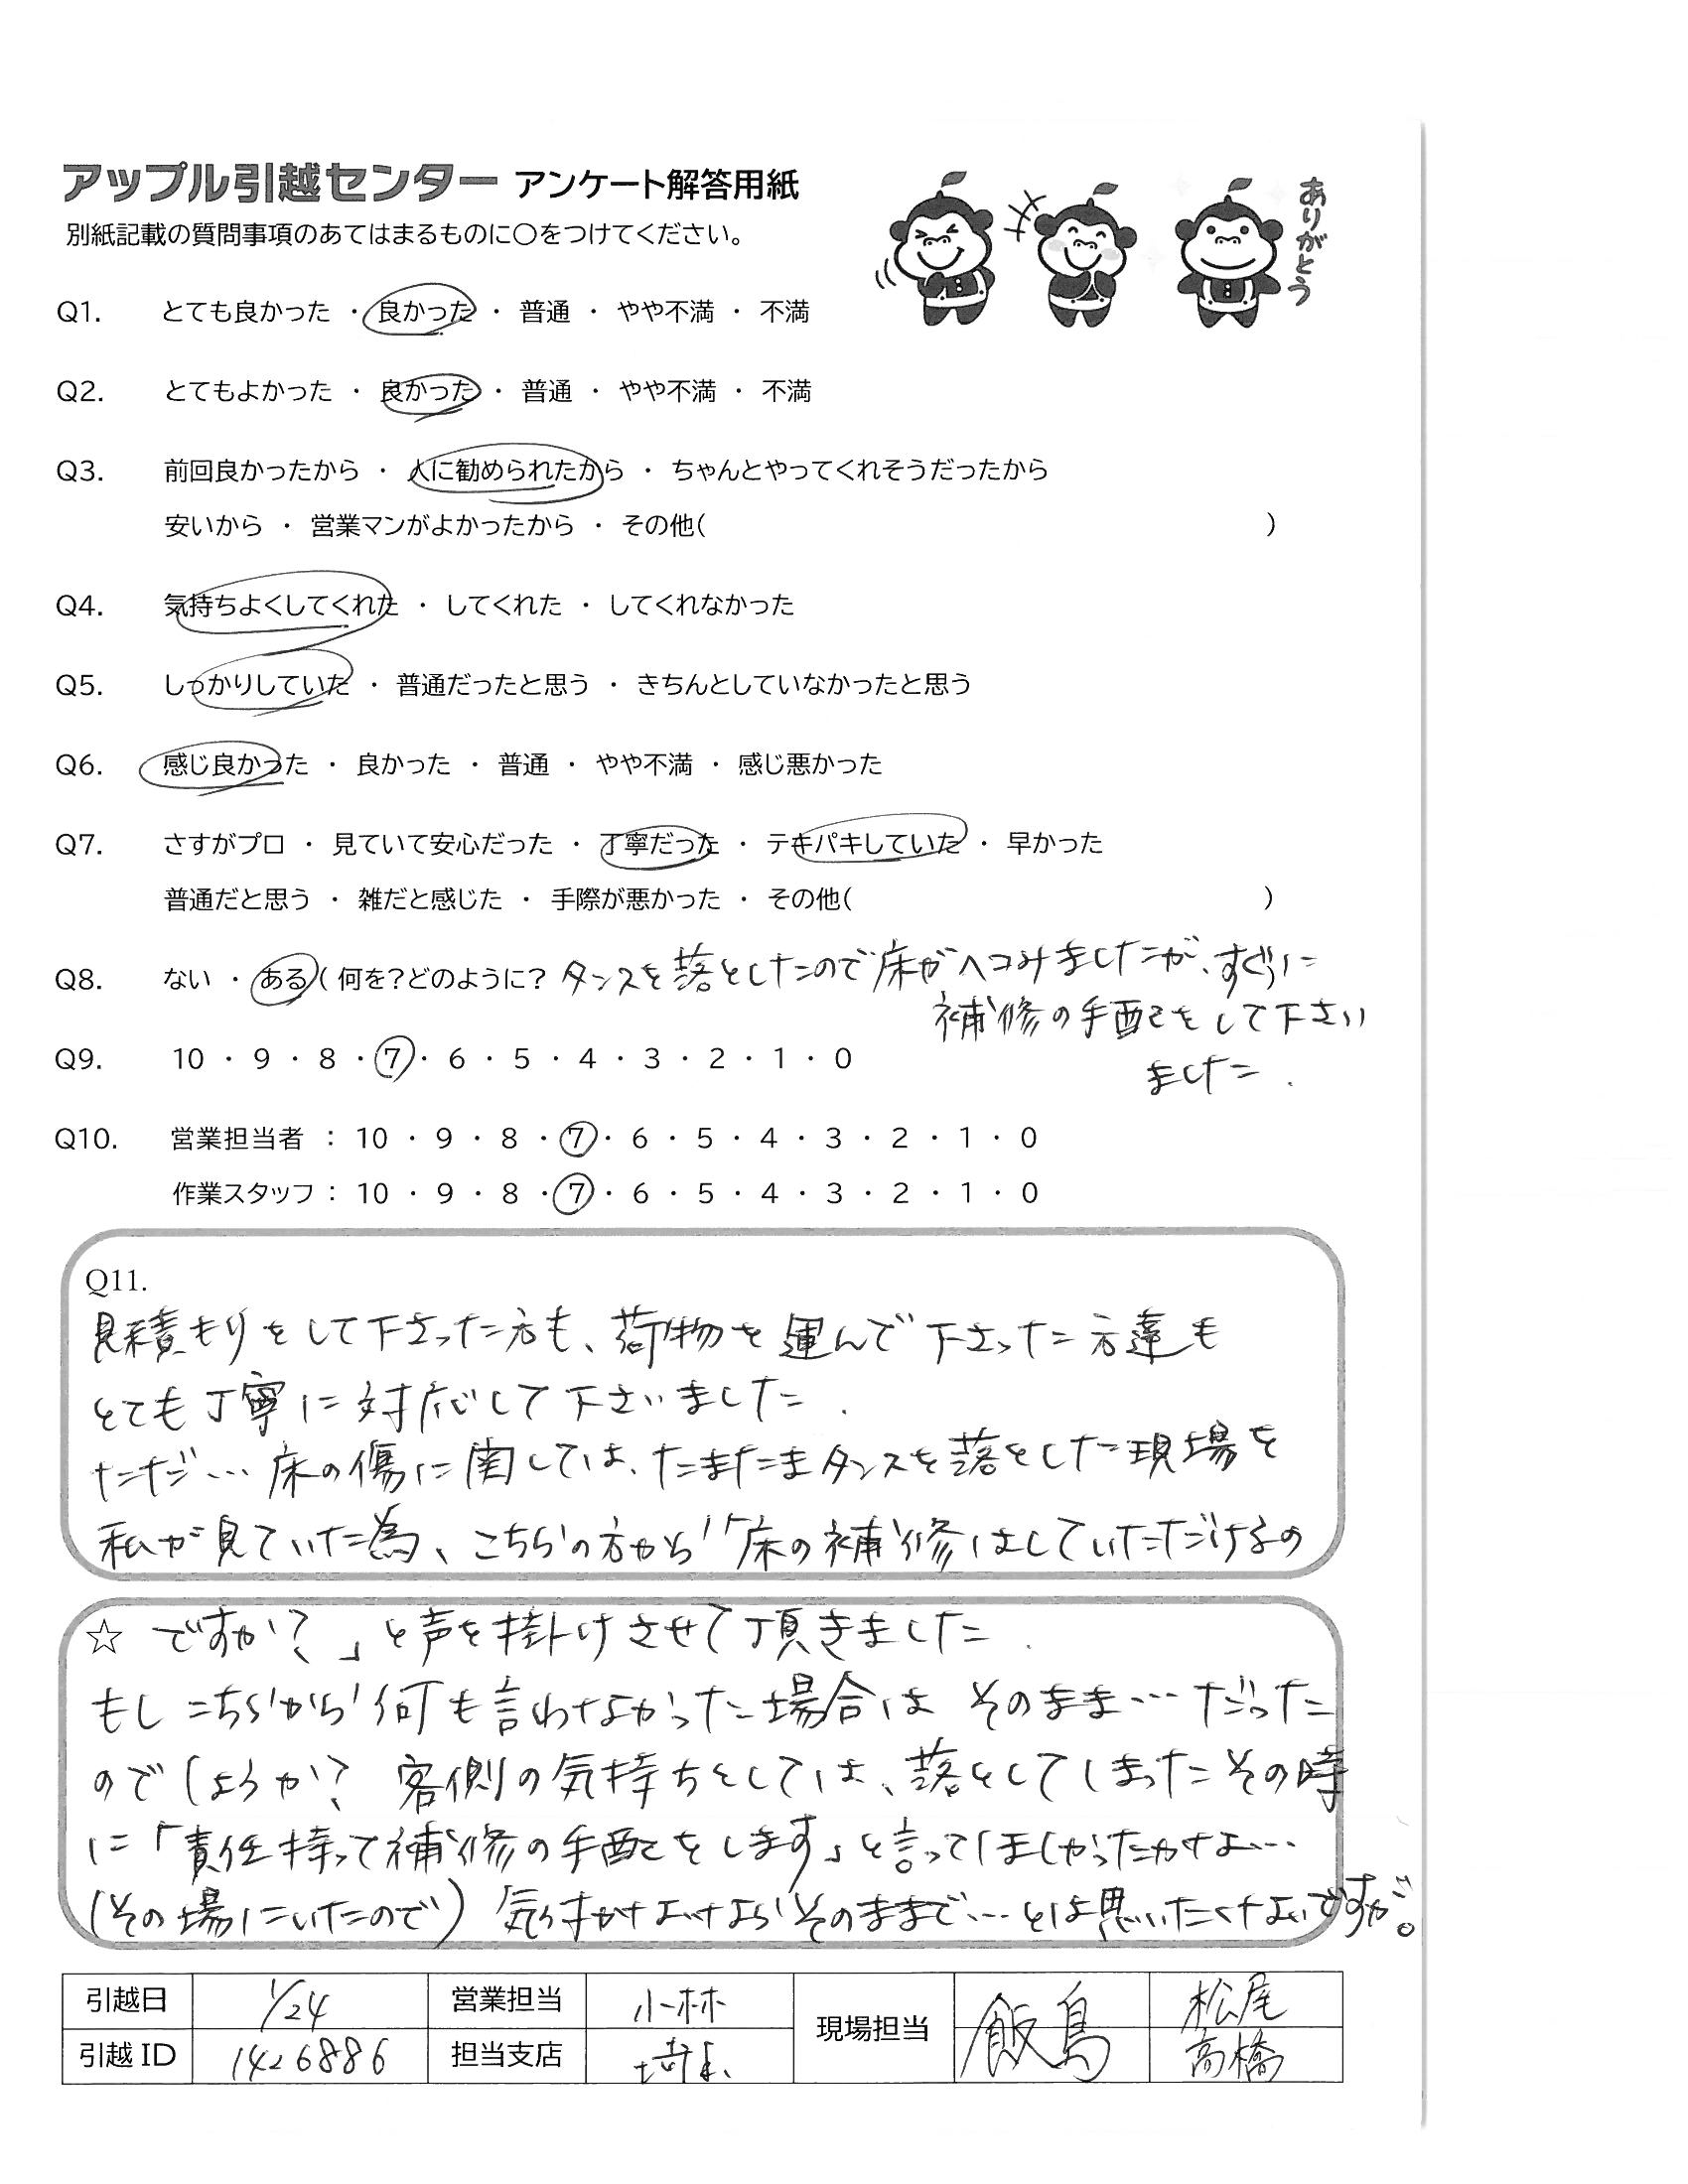 アップル引越センター アンケート解答用紙
別紙記載の質問事項のあてはまるものに○をつけてください。
ありがとう
Q1. とても良かった ・ 良かった ・ 普通 ・ やや不満 ・ 不満
Q2. とてもよかった ・ 良かった ・ 普通 ・ やや不満 ・ 不満
Q3. 前回良かったから ・ 人に勧められたから ・ ちゃんとやってくれそうだったから
安いから ・ 営業マンがよかったから ・ その他( )
Q4. 気持ちよくしてくれた ・ してくれた ・ してくれなかった
Q5. しっかりしていた ・ 普通だったと思う ・ きちんとしていなかったと思う
Q6. 感じ良かった ・ 良かった ・ 普通 ・ やや不満 ・ 感じ悪かった
Q7. さすがプロ ・ 見ていて安心だった ・ 丁寧だった ・ テキパキしていた ・ 早かった
普通だと思う ・ 雑だと感じた ・ 手際が悪かった ・ その他( )
Q8. ない ・ ある ( 何を?どのように? タンスを落としたので床がヘコみましたが、すぐに
補修の手配をして下さい
ました.
Q9. 10 ・ 9 ・ 8 ・ 7 ・ 6 ・ 5 ・ 4 ・ 3 ・ 2 ・ 1 ・ 0
Q10. 営業担当者 : 10 ・ 9 ・ 8 ・ 7 ・ 6 ・ 5 ・ 4 ・ 3 ・ 2 ・ 1 ・ 0
作業スタッフ : 10 ・ 9 ・ 8 ・ 7 ・ 6 ・ 5 ・ 4 ・ 3 ・ 2 ・ 1 ・ 0
Q11.
見積もりをして下さった方も、荷物を運んで下さった方達も
とても丁寧に対応して下さいました.
ただ… 床の傷に関しては、たまたまタンスを落とした現場を
私が見ていた為、こちらの方から「床の補修はしていただけるの
☆ ですか?」と声を掛けさせて頂きました.
もしこちらから何も言わなかった場合は そのまま…だった
のでしょうか? 客側の気持ちとしては、落としてしまったその時
に「責任持って補修の手配をします」と言ってほしかったかな…
(その場にいたので) 気付かなければそのままで…とは思いたくないですが。
引越日 1/24 営業担当 小林 現場担当 飯島 松尾
引越ID 1426886 担当支店 埼玉 高橋